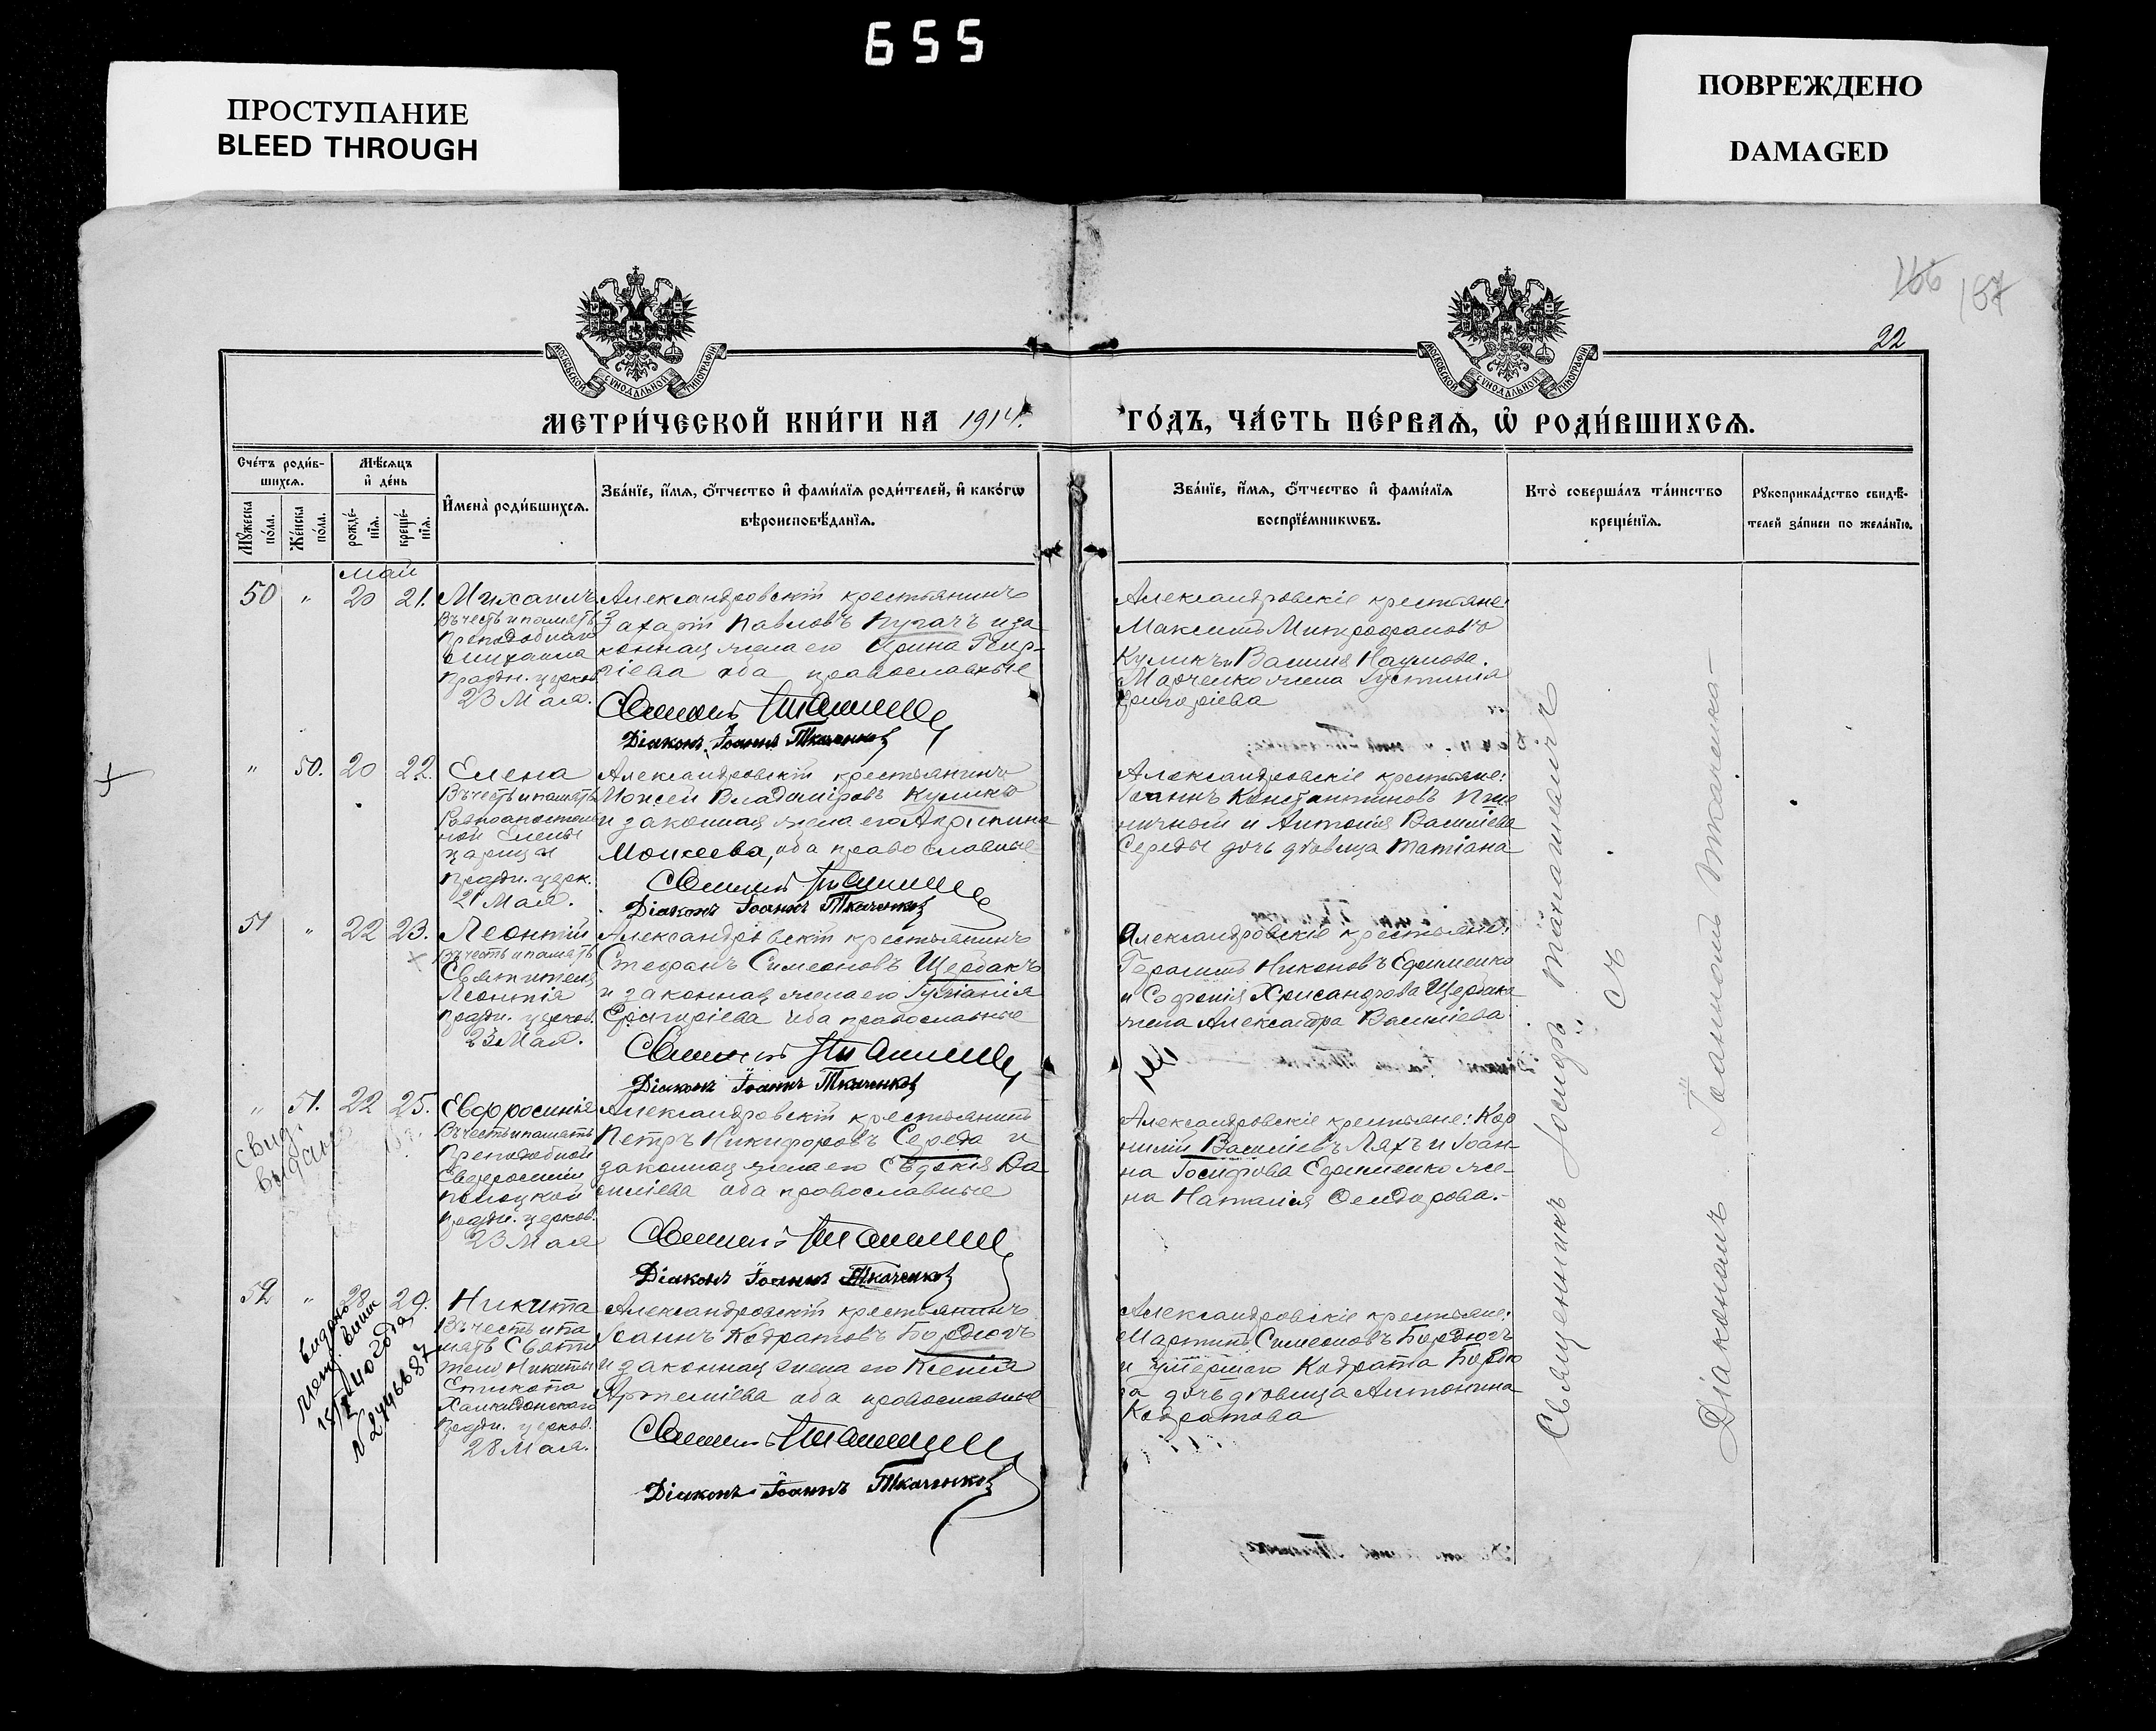 655
ПРОСТУПАНИЕ
BLEED THROUGH
ПОВРЕЖДЕНО
DAMAGED
166 167
22
МОСКОВСКОЙ СѴНОДАЛЬНОЙ ТИПОГРАФІИ
МОСКОВСКОЙ СѴНОДАЛЬНОЙ ТИПОГРАФІИ
МЕТРИ́ЧЕСКОЙ КНИ́ГИ НА 1914
ГО́ДЪ, ЧА́СТЬ ПЕ́РВАѦ, Ѡ҆ РОДИ́ВШИХСѦ.
Сче́тъ роди́в-
шихсѧ.
Мꙋ́жеска по́ла.
Же́нска по́ла.
Мѣ́сѧцъ
и҆ де́нь
рожде́-
нїѧ.
креще́-
нїѧ.
И҆мена̀ роди́вшихсѧ.
Зва́нїе, и҆́мѧ, ѻ҆́тчество и҆ фами́лїѧ роди́телей, и҆ како́гѡ
вѣроисповѣ́данїѧ.
Зва́нїе, и҆́мѧ, ѻ҆́тчество и҆ фами́лїѧ
воспрїе́мникѡвъ.
Кто̀ соверша́лъ та́инство
креще́нїѧ.
Рꙋкоприкла́дство свидѣ́-
телей за́писи по жела́нїю.
май
50 " 20 21.
Михаилъ
Въ честь и память
Преподобнаго
Михаила
праздн. церков.
23 Мая.
Александровскій крестьянинъ
Захарій Павловъ Пугачъ и за
конная жена его Ирина Геор-
гіева оба православные
Священникъ
Діаконъ Іоаннъ Ткаченко
Александровскіе крестьяне:
Максимъ Митрофановъ
Куликъ и Василія Наумова
Марченко жена Іустинія
Григоріева
" 50. 20 22.
Елена
Въ честь и память
Равноапостоль
ной Елены
царицы
праздн. церк.
21 Мая.
Александровскій крестьянинъ
Моисей Владиміровъ Куликъ
и законная жена его Агрипина
Моисеева, оба православные
Священникъ
Діаконъ Іоаннъ Ткаченко
Александровскіе крестьяне:
Іоаннъ Константиновъ Пше
ничный и Антонія Василіева
Середы дочь дѣвица Татіана
51 " 22 23.
Леонтій
Въ честь и память
Святителя
Леонтія
праздн. церков.
23 Мая.
Александровскій крестьянинъ
Стефанъ Симеоновъ Щербакъ
и законная жена его Іуліанія
Григоріева оба православные
Священникъ
Діаконъ Іоаннъ Ткаченко
Александровскіе крестьяне:
Герасимъ Никоновъ Ефименко
и Софонія Хрисанфова Щербака
жена Александра Василіева
" 51. 22 25.
Свид.
выдано
Евфросинія
Въ честь и память
Преподобной
Евфросиніи
Полоцкой
праздн. церков.
23 Мая
Александровскій крестьянинъ
Петръ Никифоровъ Середа и
законная жена его Евдокія Ва
силіева оба православные
Священникъ
Діаконъ Іоаннъ Ткаченко
Александровскіе крестьяне: Кор
нилій Василіевъ Ляхъ и Іоан-
на Іосифова Ефименко же-
на Наталія Феодорова.
52 " 28 29.
выдано
Никита
Въ честь и па
мять Святи
теля Никиты
Епископа
Халкидонскаго
праздн. церков.
28 Мая.
Александровскій крестьянинъ
Іоаннъ Кодратовъ Бордюгъ
и законная жена его Ксенія
Артеміева оба православные
Священникъ
Діаконъ Іоаннъ Ткаченко
Александровскіе крестьяне:
Мартинъ Симеоновъ Бордюгъ
и умершаго Кодрата Бордю
га дочь дѣвица Антонина
Кодратова
Священникъ Іосифъ
съ
Діакономъ Іоанномъ Ткаченко